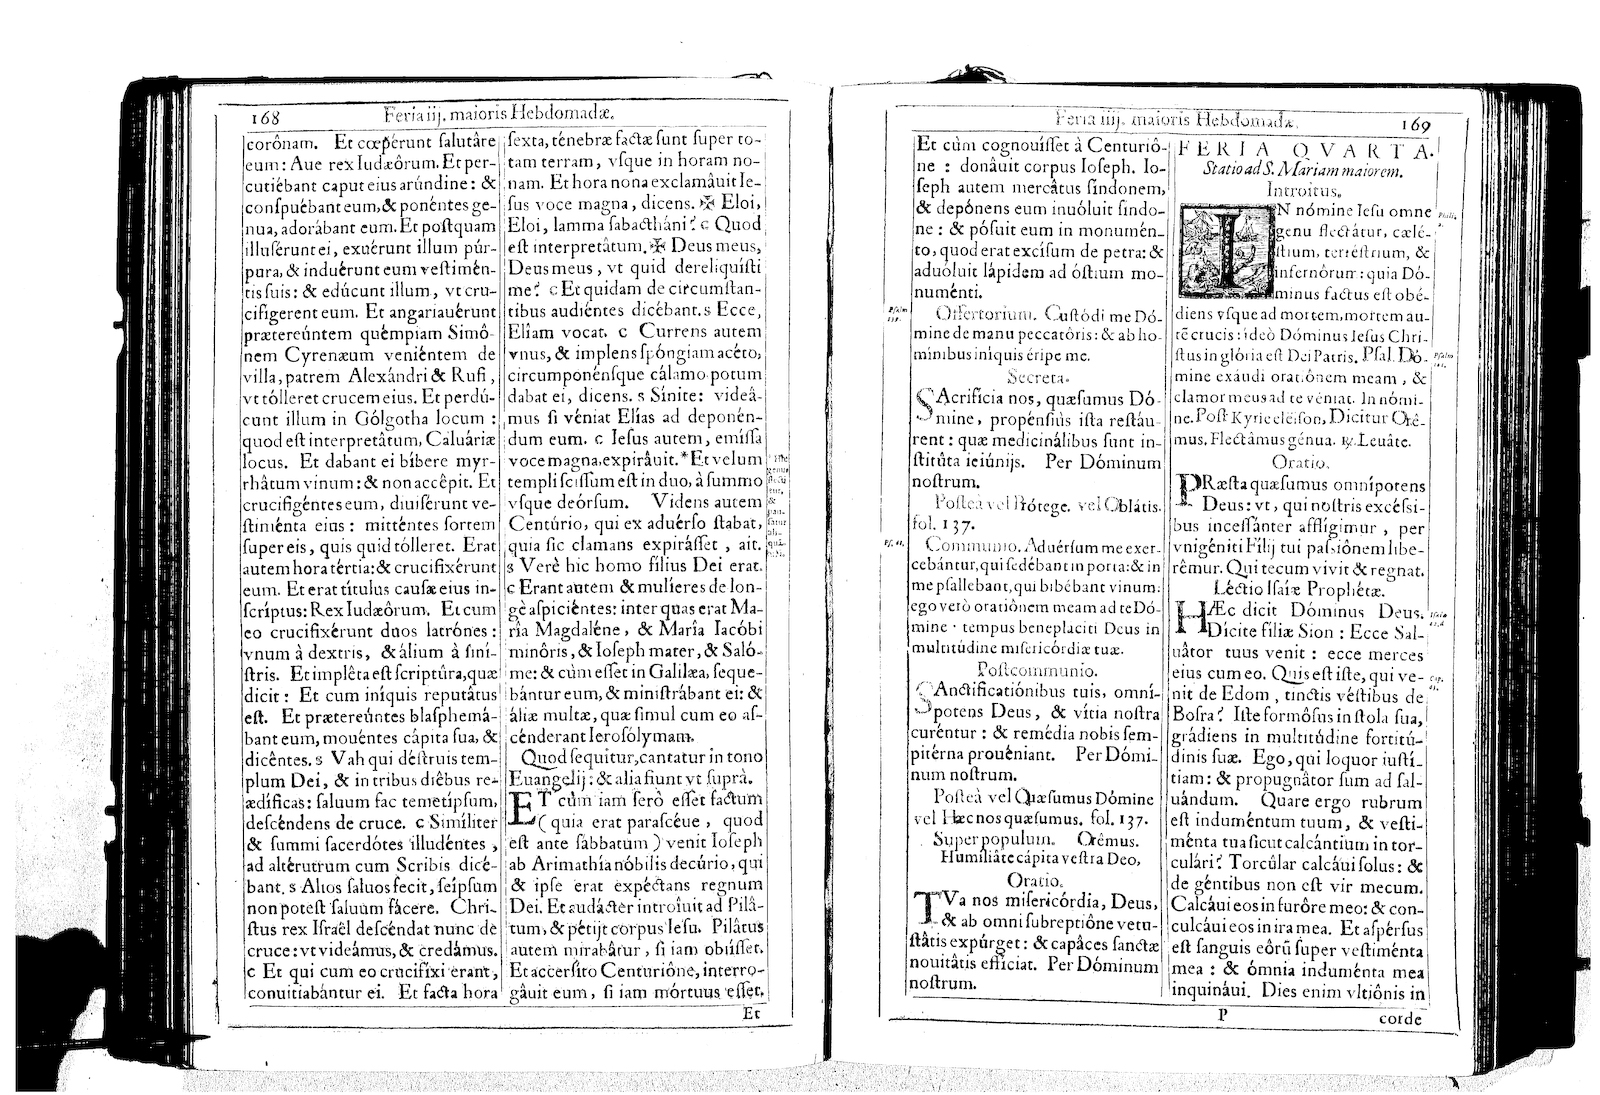 168
Feria iij. maioris Hebdomadæ.
corônam. Et cœpérunt ſalutâre
eum: Aue rex Iudæôrum. Et per-
cutiébant caput eius arúndine: &
conſpuébant eum, & ponéntes ge-
nua, adorábant eum. Et poſtquam
illuſérunt ei, exuérunt illum púr-
pura, & induérunt eum veſtimén-
tis ſuis: & edúcunt illum, vt cru-
cifigerent eum. Et angariauérunt
prætereúntem quémpiam Simô-
nem Cyrenæum veniéntem de
villa, patrem Alexándri & Rufi,
vt tólleret crucem eius. Et perdú-
cunt illum in Gólgotha locum:
quod eſt interpretâtum, Caluáriæ
locus. Et dabant ei bíbere myr-
rhâtum vinum: & non accêpit. Et
crucifigéntes eum, diuiſérunt ve-
ſtiménta eius: mitténtes ſortem
ſuper eis, quis quid tólleret. Erat
autem hora tértia: & crucifixérunt
eum. Et erat títulus cauſæ eius in-
ſcríptus: Rex Iudæôrum. Et cum
eo crucifixérunt duos latrónes:
vnum à dextris, & álium à ſini-
ſtris. Et implêta eſt ſcriptûra, quæ
dicit: Et cum iníquis reputâtus
eſt. Et prætereúntes blaſphemá-
bant eum, mouéntes cápita ſua, &
dicêntes. s Vah qui déſtruis tem-
plum Dei, & in tribus diêbus re-
ædíficas: ſaluum fac temetípſum,
deſcéndens de cruce. c Simíliter
& ſummi ſacerdótes illudéntes,
ad altérutrum cum Scribis dicé-
bant. s Alios ſaluos fecit, ſeípſum
non poteſt ſaluum fácere. Chri-
ſtus rex Iſraêl deſcéndat nunc de
cruce: vt videámus, & credâmus.
c Et qui cum eo crucifíxi erant,
conuitiabántur ei. Et facta hora
ſexta, ténebræ factæ ſunt ſuper to-
tam terram, vſque in horam no-
nam. Et hora nona exclamâuit Ie-
ſus voce magna, dicens. ✠ Eloi,
Eloi, lamma ſabacthâni? c Quod
eſt interpretâtum. ✠ Deus meus,
Deus meus, vt quid dereliquíſti
me? c Et quidam de circumſtan-
tibus audiéntes dicébant. s Ecce,
Elîam vocat. c Currens autem
vnus, & implens ſpóngiam acéto,
circumponénſque cálamo potum
dabat ei, dicens. s Sínite: videâ-
mus ſi véniat Elías ad deponén-
dum eum. c Ieſus autem, emíſſa
voce magna, expirâuit. * Et velum
templi ſciſſum eſt in duo, à ſummo
vſque deórſum. Videns autem
Centúrio, qui ex aduérſo ſtabat,
quia ſic clamans expiráſſet, ait.
s Verè hic homo fílius Dei erat.
c Erant autem & mulíeres de lon-
gè aſpiciéntes: inter quas erat Ma-
ría Magdaléne, & María Iacóbi
minôris, & Ioſeph mater, & Saló-
me: & cùm eſſet in Galilæa, ſeque-
bántur eum, & miniſtrábant ei: &
áliæ multæ, quæ ſimul cum eo aſ-
cénderant Ieroſólymam.
Quod ſequitur, cantatur in tono
Euangelij: & alia fiunt vt ſuprà.
ET cùm iam ſerò eſſet factum
(quia erat paraſcéue, quod
eſt ante ſábbatum) venit Ioſeph
ab Arimathía nóbilis decúrio, qui
& ipſe erat expéctans regnum
Dei. Et audácter introîuit ad Pilâ-
tum, & pétijt corpus Ieſu. Pilâtus
autem mirabâtur, ſi iam obiíſſet.
Et accerſîto Centuriône, interro-
gâuit eum, ſi iam mórtuus eſſet.
Et
Feria iiij. maioris Hebdomadæ.
169
Et cùm cognouíſſet à Centuriô-
ne: donâuit corpus Ioſeph. Io-
ſeph autem mercâtus ſíndonem,
& depónens eum inuóluit ſíndo-
ne: & póſuit eum in monumén-
to, quod erat excíſum de petra: &
aduóluit lápidem ad óſtium mo-
numénti.
Offertorium. Cuſtódi me Dó-
mine de manu peccatóris: & ab ho-
mínibus iníquis éripe me.
Secreta.
SAcrifícia nos, quæſumus Dó-
mine, propénſiùs iſta reſtáu-
rent: quæ medicinálibus ſunt in-
ſtitûta ieiúnijs. Per Dóminum
noſtrum.
Poſteà vel Prótege. vel Oblátis.
fol. 137.
Pſ. 68.
Communio. Aduérſum me exer-
cebántur, qui ſedébant in porta: & in
me pſallebant, qui bibébant vinum:
ego verò oratiônem meam ad te Dó-
mine: tempus beneplaciti Deus in
multitúdine miſericórdiæ tuæ.
Poſtcommunio.
SAnctificatiónibus tuis, omní-
potens Deus, & vítia noſtra
curéntur: & remédia nobis ſem-
pitérna prouéniant. Per Dómi-
num noſtrum.
Poſteà vel Quæſumus Dómine
vel Hæc nos quæſumus. fol. 137.
Super populum. Orêmus.
Humiliâte cápita veſtra Deo,
Oratio.
TVa nos miſericórdia, Deus,
& ab omni ſubreptiône vetu-
ſtâtis expúrget: & capâces ſanctæ
nouitâtis effíciat. Per Dóminum
noſtrum.
P
FERIA QVARTA.
Statio ad S. Mariam maiorem.
Introitus.
IN nómine Ieſu omne
genu flectâtur, cælé-
ſtium, terréſtrium, &
infernórum: quia Dó-
minus factus eſt obé-
diens vſque ad mortem, mortem au-
tẽ crucis: ideò Dóminus Ieſus Chri-
ſtus in glória eſt Dei Patris. Pſal. Dó-
mine exáudi oratiónem meam, &
clamor meus ad te véniat. In nómi-
ne. Poſt Kyrie eléiſon, Dicitur Orê-
mus. Flectâmus génua. ℟. Leuáte.
Oratio.
PRæſta quæſumus omnípotens
Deus: vt, qui noſtris excéſsi-
bus inceſſánter afflígimur, per
vnigéniti Fílij tui paſsiônem libe-
rêmur. Qui tecum vivit & regnat.
Léctio Iſaíæ Prophétæ.
HÆc dicit Dóminus Deus.
Dícite fíliæ Sion: Ecce Sal-
uâtor tuus venit: ecce merces
eius cum eo. Quis eſt iſte, qui ve-
nit de Edom, tinctis véſtibus de
Boſra? Iſte formôſus in ſtola ſua,
grádiens in multitúdine fortitú-
dinis ſuæ. Ego, qui loquor iuſtí-
tiam: & propugnâtor ſum ad ſal-
uándum. Quare ergo rubrum
eſt induméntum tuum, & veſti-
ménta tua ſicut calcántium in tor-
culári? Torcûlar calcáui ſolus: &
de géntibus non eſt vir mecum.
Calcáui eos in furôre meo: & con-
culcáui eos in ira mea. Et aſpérſus
eſt ſanguis eórũ ſuper veſtiménta
mea: & ómnia induménta mea
inquináui. Dies enim vltiônis in
corde